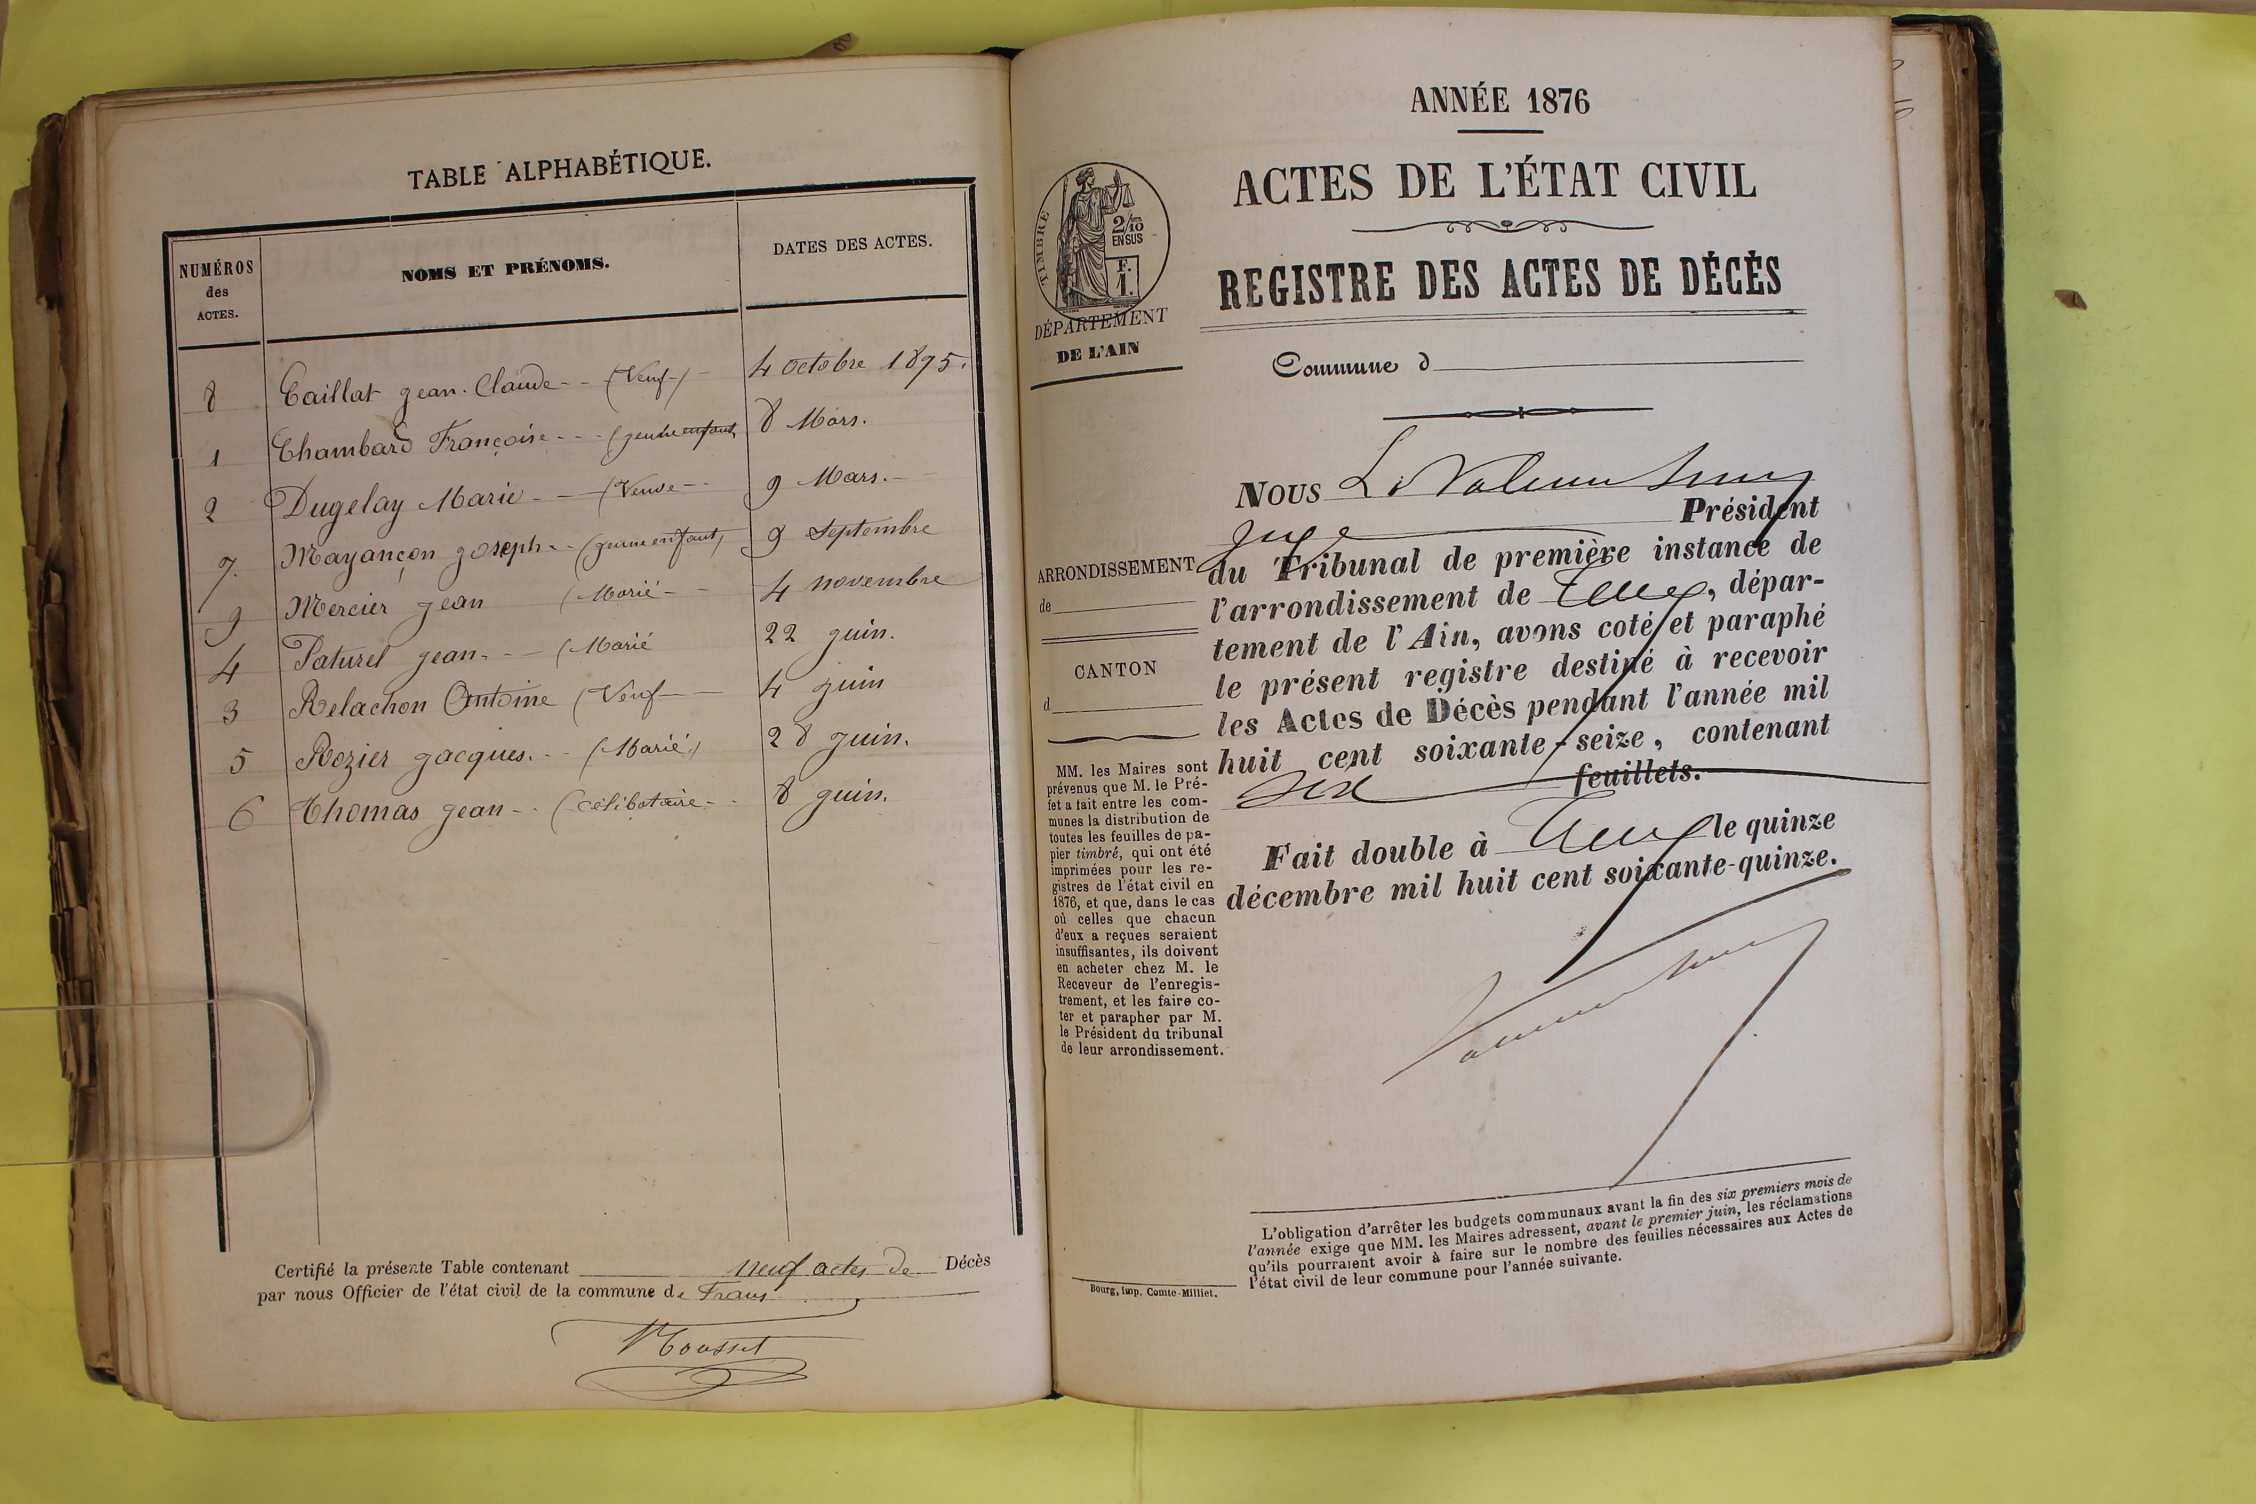 TABLE ALPHABÉTIQUE.
NUMÉROS des ACTES. NOMS ET PRÉNOMS. DATES DES ACTES.
8 Caillat jean-Claude -- (Veuf) - 4 octobre 1875.
1 Chambard Françoise --- (jeune enfant, 8 Mars.
2 Dugelay Marie -- (Veuve -- 9 Mars. -
7. Mayançon joseph -- (jeune enfant, 9 Septembre
9 Mercier jean (Marié -- 4 novembre
4 Paturel jean -- (Marié 22 juin.
3 Relachon Antoine (Veuf -- 4 juin
5 Rozier jacques. -- (Marié) 28 juin.
6 Thomas jean -- (célibataire -- 8 juin.
Certifié la présente Table contenant neuf actes de Décès
par nous Officier de l'état civil de la commune de Frans
Mousset
ANNÉE 1876
ACTES DE L'ÉTAT CIVIL
REGISTRE DES ACTES DE DÉCÈS
TIMBRE
2/10
EN SUS
F.
1.
DÉPARTEMENT
DE L'AIN
Commune d
ARRONDISSEMENT
de
CANTON
d
MM. les Maires sont
prévenus que M. le Pré-
fet a fait entre les com-
munes la distribution de
toutes les feuilles de pa-
pier timbré, qui ont été
imprimées pour les re-
gistres de l'état civil en
1876, et que, dans le cas
où celles que chacun
d'eux a reçues seraient
insuffisantes, ils doivent
en acheter chez M. le
Receveur de l'enregis-
trement, et les faire co-
ter et parapher par M.
le Président du tribunal
de leur arrondissement.
NOUS
juge Président
du Tribunal de première instance de
l'arrondissement de , dépar-
tement de l'Ain, avons coté et paraphé
le présent registre destiné à recevoir
les Actes de Décès pendant l'année mil
huit cent soixante-seize, contenant
six feuillets.
Fait double à le quinze
décembre mil huit cent soixante-quinze.
L'obligation d'arrêter les budgets communaux avant la fin des six premiers mois de
l'année exige que MM. les Maires adressent, avant le premier juin, les réclamations
qu'ils pourraient avoir à faire sur le nombre des feuilles nécessaires aux Actes de
l'état civil de leur commune pour l'année suivante.
Bourg, imp. Comte-Milliet.